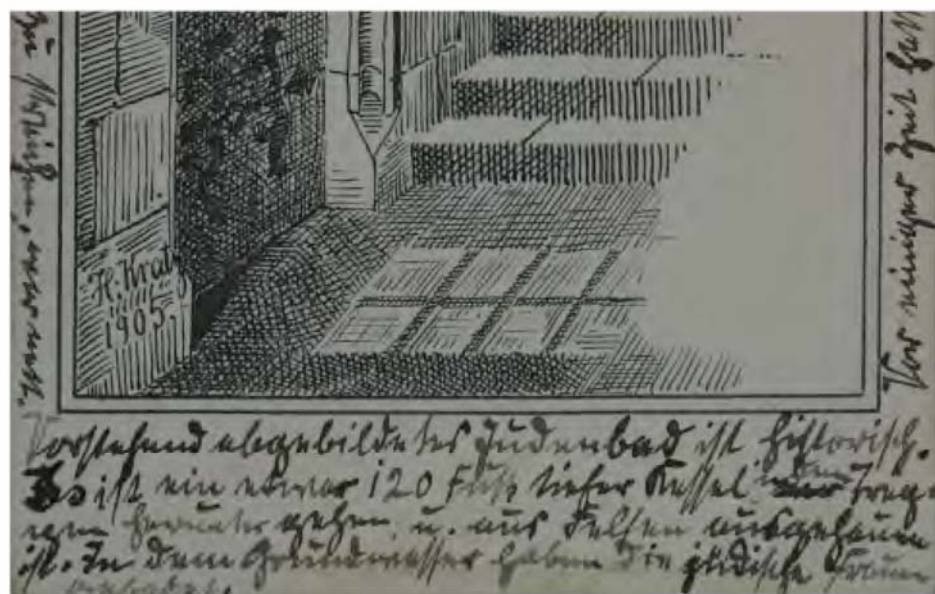 H. Kratz
1905.
Vorstehend abgebildetes Judenbad ist historisch.
Es ist ein etwa 120 Fuß tiefer Kessel in den Trep
pen herunter gehen u. aus Felsen ausgehauen
ist. In dem Grundwasser haben die jüdische Frauen
Vor einiger Zeit
zu